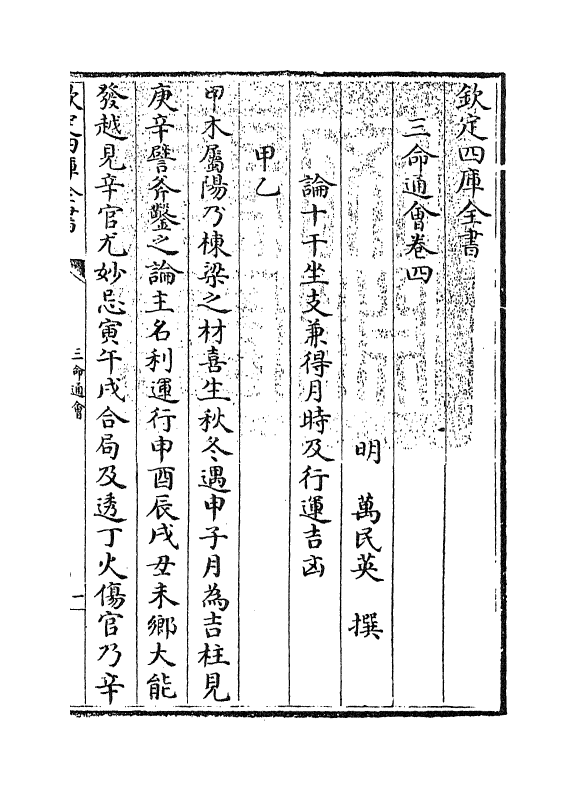 欽定四庫全書
三命通會卷四
明 萬民英 撰
論十干坐支兼得月時及行運吉凶
甲乙
甲木屬陽乃棟梁之材喜生秋冬遇申子月為吉柱見
庚辛譬斧鑿之論主名利運行申酉辰戌丑未鄉大能
發越見辛官尤妙忌寅午戌合局及透丁火傷官乃辛
欽定四庫全書
三命通會